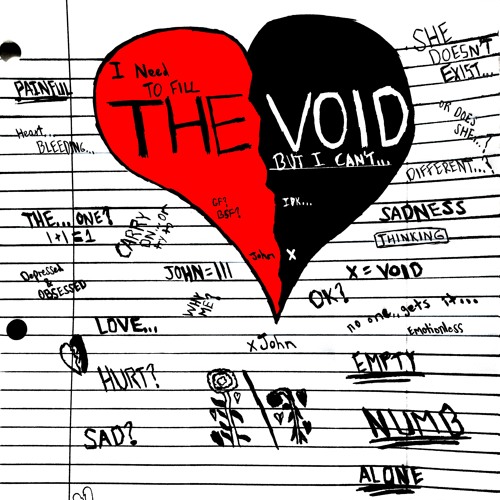 SHE
DOESN'T
EXIST...
I Need
TO FILL
THE VOID
BUT I CAN'T...
PAINFUL
OR DOES
SHE..?
Heart...
BLEEDING...
DIFFERENT...?
GF?
BSF?
IDK...
THE... ONE?
1+1=1
CARRY
ON.. or
try to
SADNESS
THINKING
John
X
Depressed
&
OBSESSED
JOHN=III
X = VOID
WHY
ME?
OK?
LOVE...
no one.. gets it...
Emotionless
x John
EMPTY
HURT?
NUMB
SAD?
ALONE